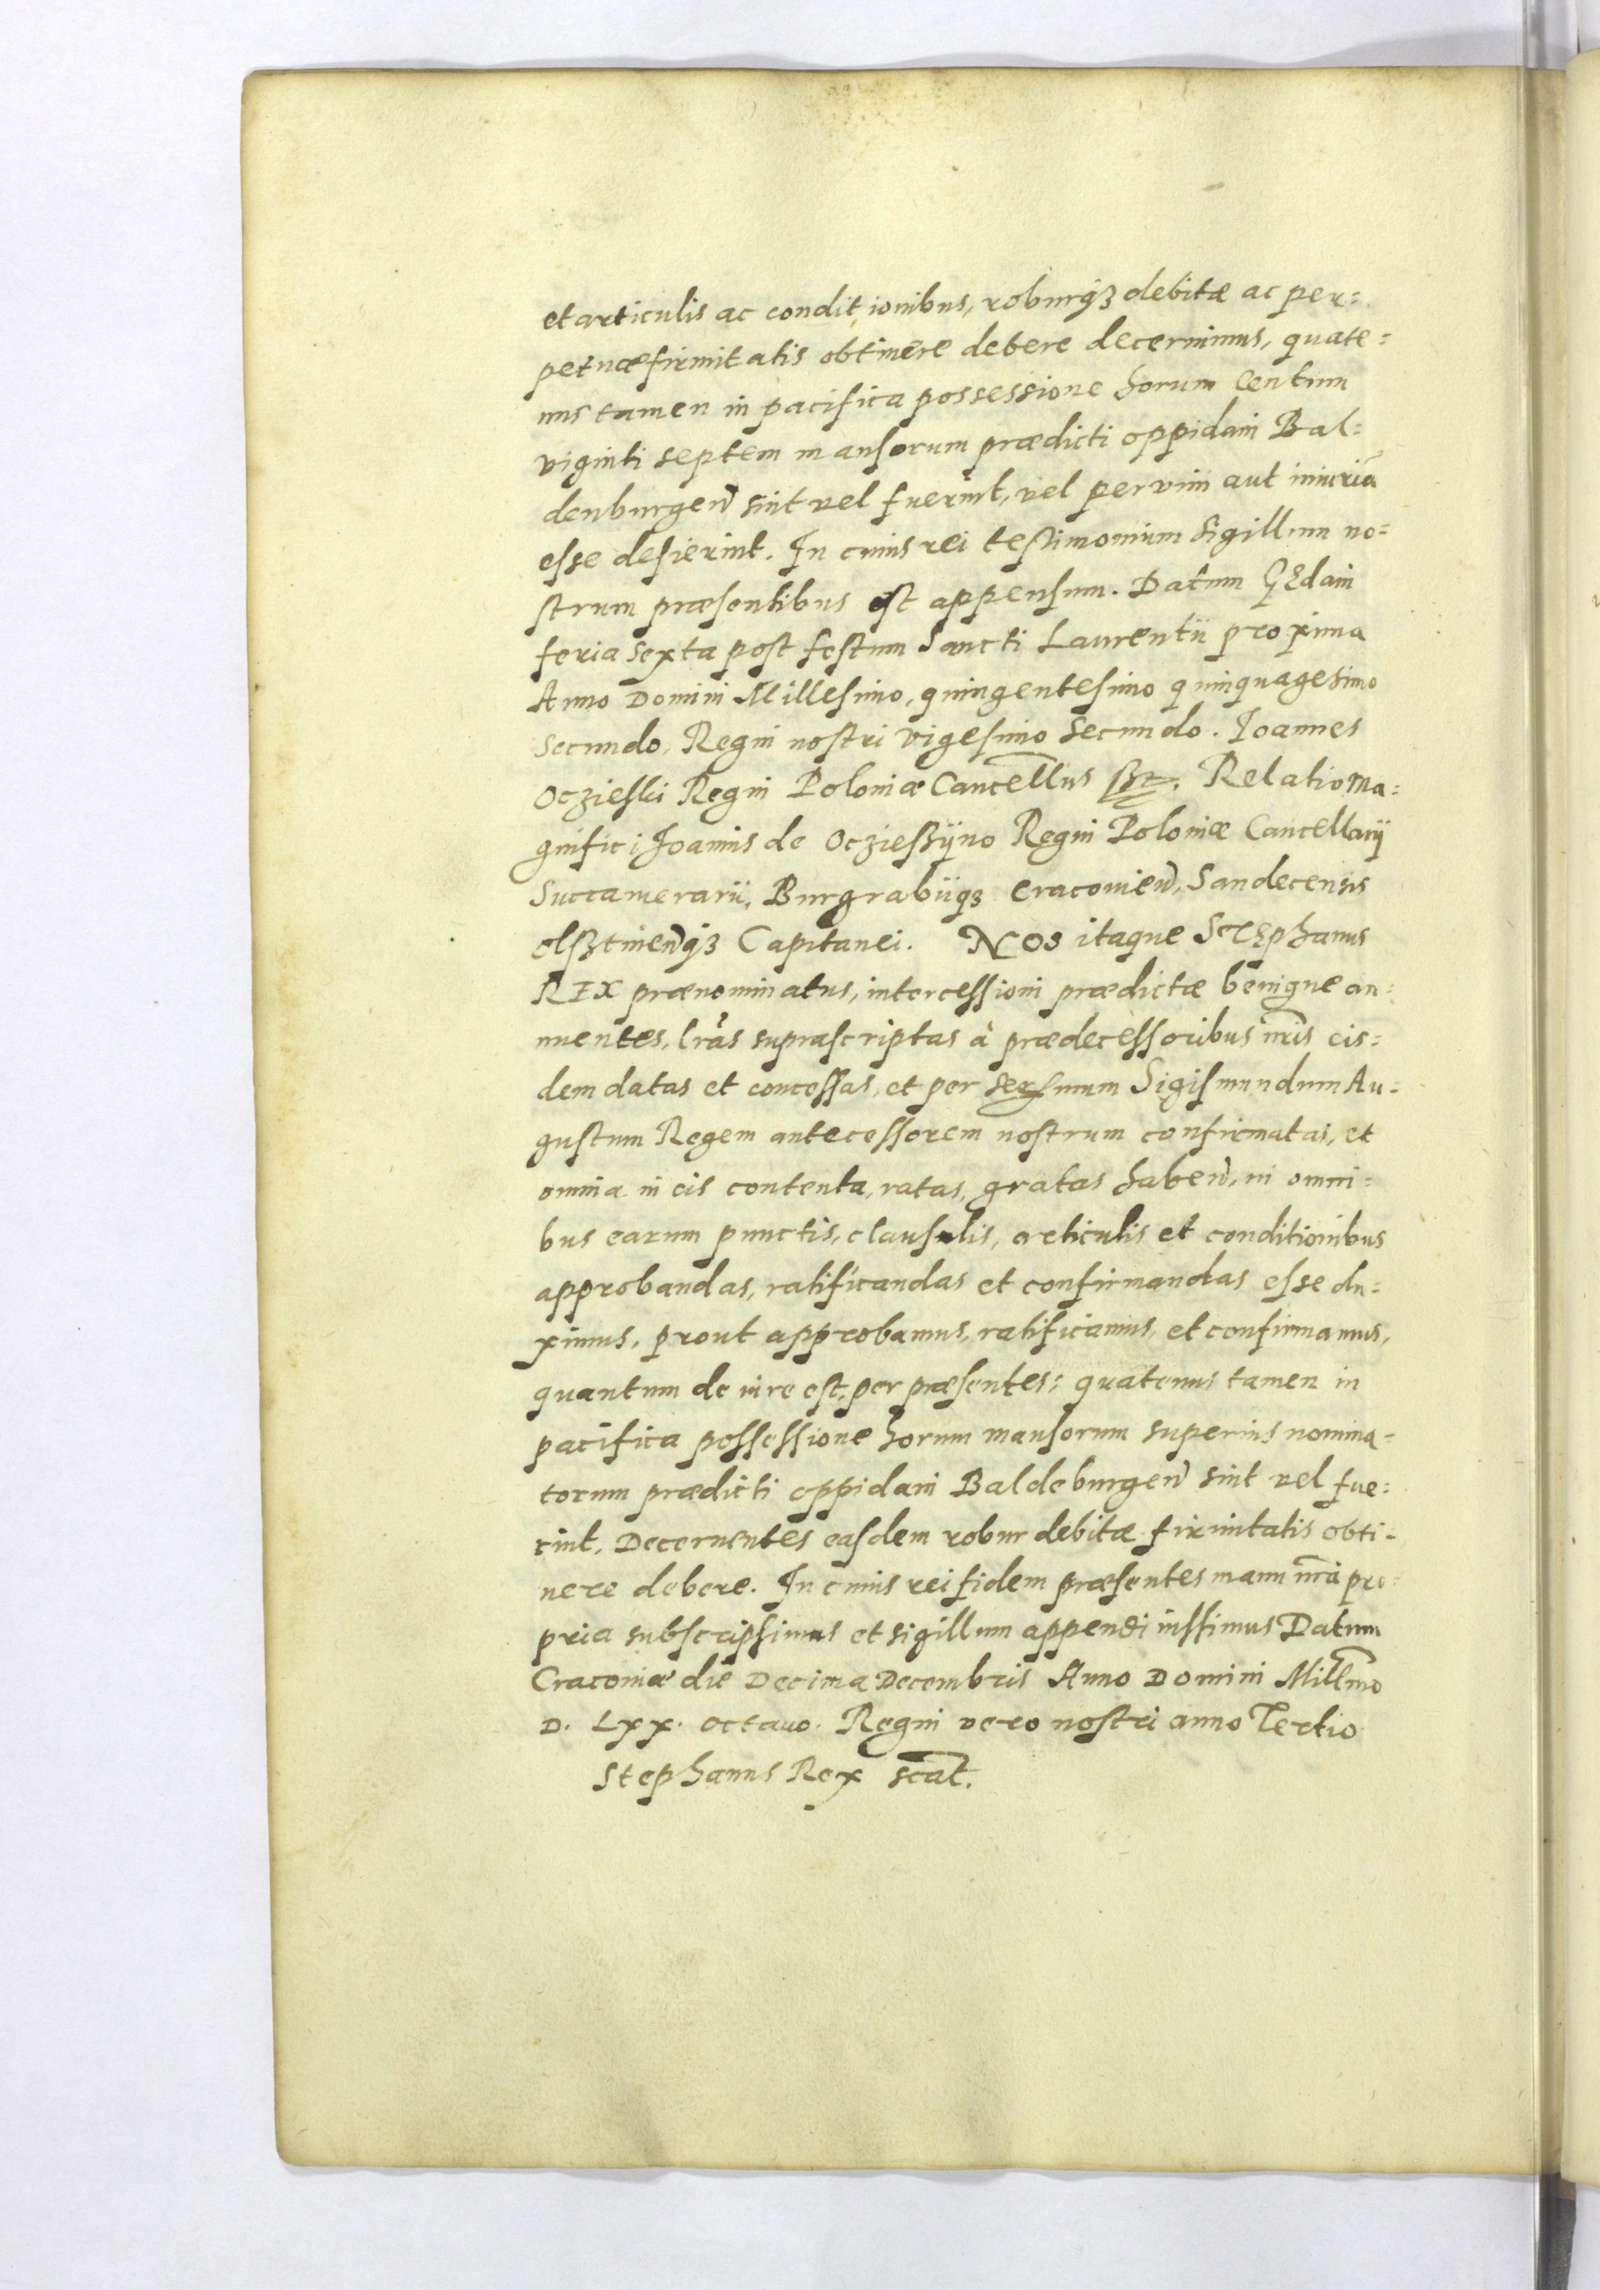 et articulis ac conditionibus, roburq̃ꝫ debitæ ac per=
petuæ firmitatis obtinere debere decernimus, quate=
nus tamen in pacifica possessione horum Centum
viginti septem mansorum prædicti oppidani Bal=
denburgeñ sint vel fuerint, vel per vim aut iniuriā
esse desierint. In cuius rei testimonium sigillum no=
strum præsentibus est appensum. Datum Gedani
feria sexta post festum Sancti Laurentii proxima
Anno Domini Millesimo, quingentesimo quinquagesimo
secundo, Regni nostri vigesimo secundo. Ioannes
Oczieski Regni Poloniæ Cancell̃us sst. Relatio Ma=
gnifici Joannis de Oczießÿno Regni Poloniæ Cancellarÿ
Succamerarii, Burgrabiiqꝫ Cracovieñ, Sandecensis
olßtineñqꝫ Capitanei. Nos itaque Stephanus
REX prænominatus, intercessioni prædictæ benigne an=
nuentes, l̃ras suprascriptas à prædecessoribus nr̃is eis=
dem datas et concessas, et per serſmum Sigismundum Au=
gustum Regem antecessorem nostrum confirmatas, et
omnia in eis contenta, ratas, gratas habeñ, in omni=
bus earum punctis, clausulis, articulis et conditionibus
approbandas, ratificandas et confirmandas esse du=
ximus, prout approbamus, ratificamus, et confirmamus,
quantum de iure est, per præsentes: quatenus tamen in
pacifica possessione horum mansorum superius nomina=
torum prædicti oppidani Baldeburgeñ sint vel fue=
rint, Decernentes easdem robur debitæ firmitatis obti=
nere debere. In cuius rei fidem præsentes manu nr̃a pro=
pria subscripsimus et sigillum appendi iussimus Datum
Cracoviæ die Decima Decembris Anno Domini Mill̃mo
D. Lxx. octavo. Regni vero nostri anno Tertio
Stephanus Rex scat̃.